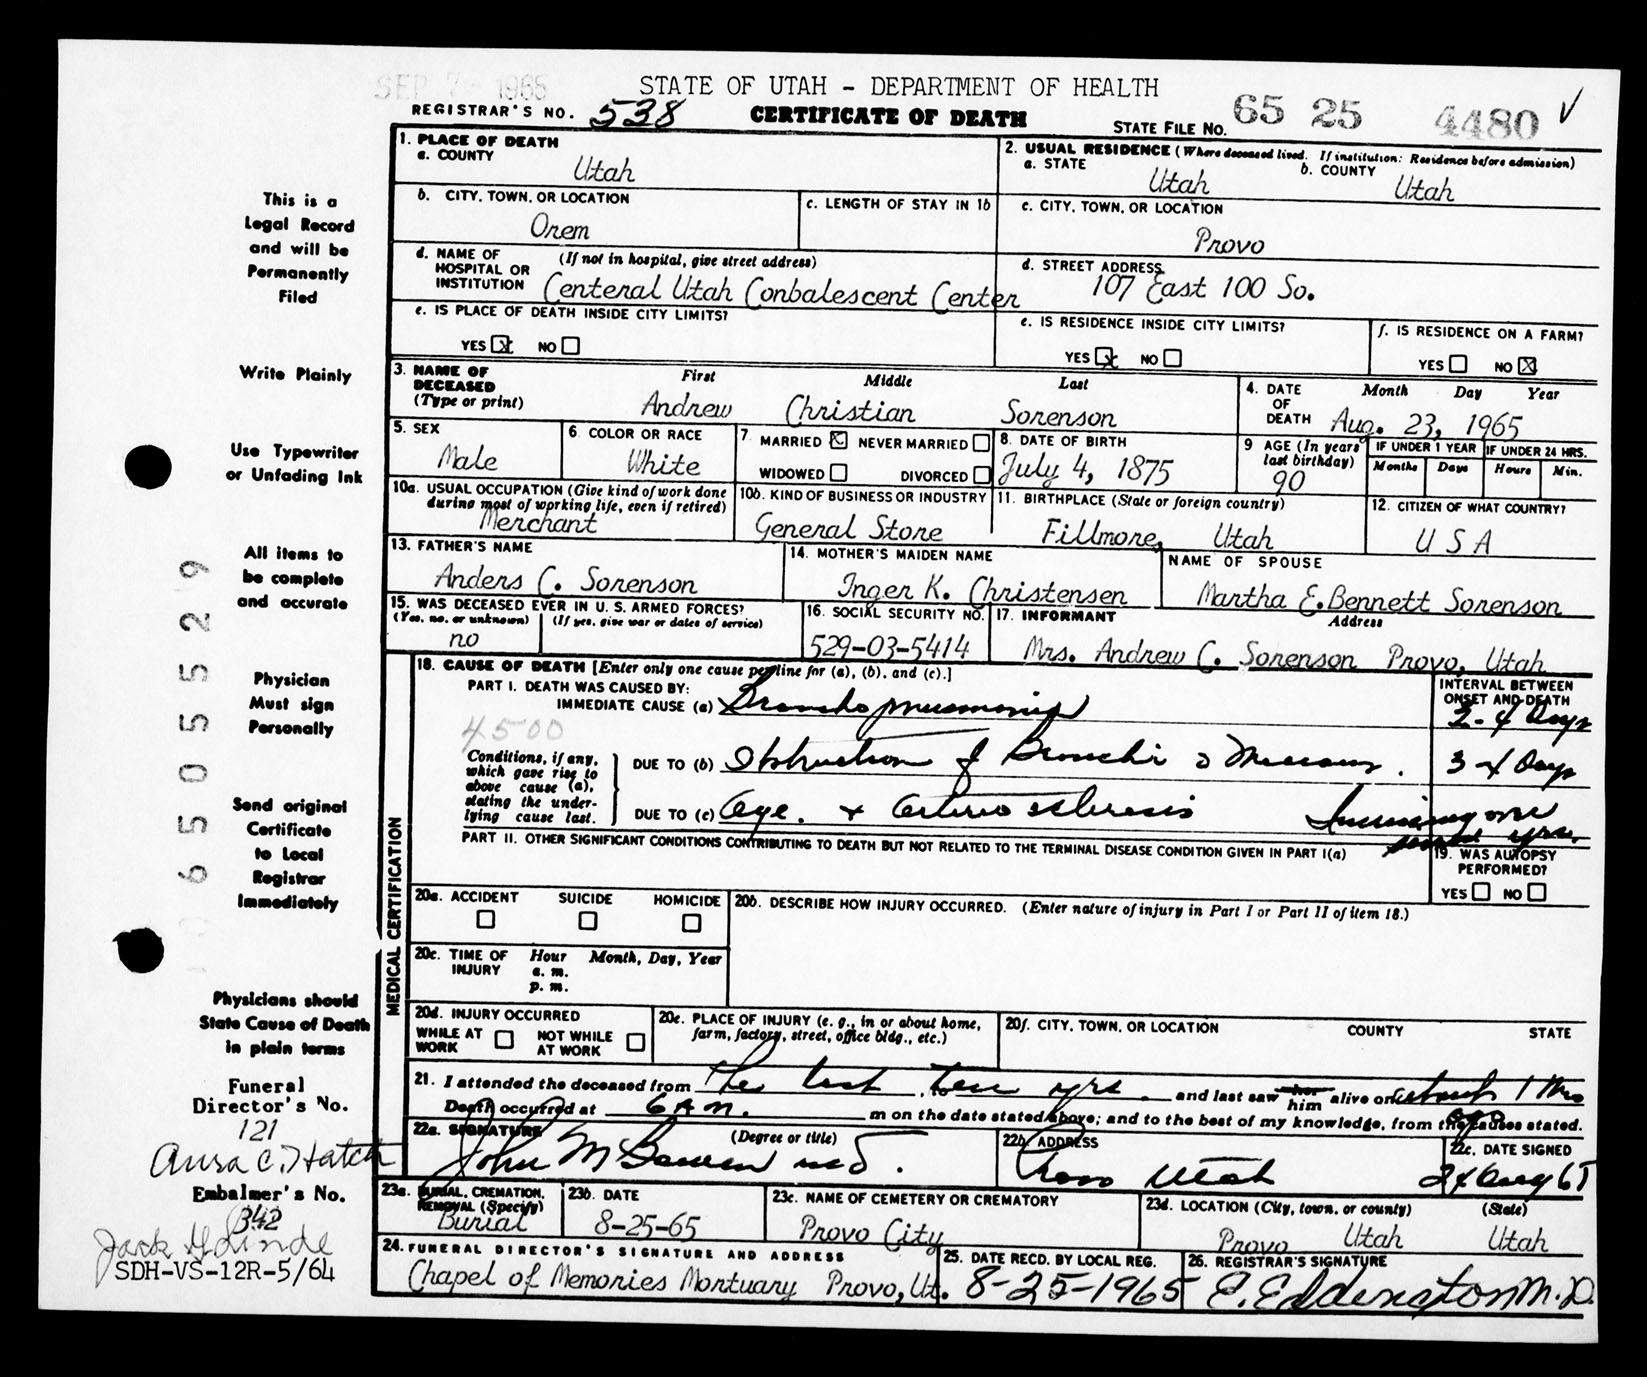 SEP 7 - 1965
STATE OF UTAH - DEPARTMENT OF HEALTH
REGISTRAR'S NO. 538
CERTIFICATE OF DEATH
STATE FILE NO. 65 25 4480 ✓
1. PLACE OF DEATH
a. COUNTY
Utah
2. USUAL RESIDENCE (Where deceased lived. If institution: Residence before admission)
a. STATE
Utah
b. COUNTY
Utah
b. CITY, TOWN, OR LOCATION
Orem
c. LENGTH OF STAY IN 1b
c. CITY, TOWN, OR LOCATION
Provo
d. NAME OF HOSPITAL OR INSTITUTION
(If not in hospital, give street address)
Centeral Utah Conbalescent Center
d. STREET ADDRESS
107 East 100 So.
e. IS PLACE OF DEATH INSIDE CITY LIMITS?
YES ☒ NO ☐
e. IS RESIDENCE INSIDE CITY LIMITS?
YES ☒ NO ☐
f. IS RESIDENCE ON A FARM?
YES ☐ NO ☒
3. NAME OF DECEASED (Type or print)
First Middle Last
Andrew Christian Sorenson
4. DATE OF DEATH
Month Day Year
Aug. 23, 1965
5. SEX
Male
6. COLOR OR RACE
White
7. MARRIED ☒ NEVER MARRIED ☐
WIDOWED ☐ DIVORCED ☐
8. DATE OF BIRTH
July 4, 1875
9 AGE (In years last birthday)
90
IF UNDER 1 YEAR
Months Days
IF UNDER 24 HRS.
Hours Min.
10a. USUAL OCCUPATION (Give kind of work done during most of working life, even if retired)
Merchant
10b. KIND OF BUSINESS OR INDUSTRY
General Store
11. BIRTHPLACE (State or foreign country)
Fillmore, Utah
12. CITIZEN OF WHAT COUNTRY?
U S A
13. FATHER'S NAME
Anders C. Sorenson
14. MOTHER'S MAIDEN NAME
Inger K. Christensen
NAME OF SPOUSE
Martha E. Bennett Sorenson
15. WAS DECEASED EVER IN U. S. ARMED FORCES?
(Yes, no, or unknown) (If yes, give war or dates of service)
no
16. SOCIAL SECURITY NO.
529-03-5414
17. INFORMANT
Address
Mrs. Andrew C. Sorenson Provo, Utah
MEDICAL CERTIFICATION
18. CAUSE OF DEATH [Enter only one cause per line for (a), (b), and (c).]
INTERVAL BETWEEN ONSET AND DEATH
PART I. DEATH WAS CAUSED BY:
IMMEDIATE CAUSE (a) Broncho pneumonia
3-4 Days
4500
Conditions, if any, which gave rise to above cause (a), stating the underlying cause last.
DUE TO (b) Obstruction of Bronchi
3-4 Days
DUE TO (c) Age. + Arterio sclerosis
Increasing over several yrs.
PART II. OTHER SIGNIFICANT CONDITIONS CONTRIBUTING TO DEATH BUT NOT RELATED TO THE TERMINAL DISEASE CONDITION GIVEN IN PART I(a)
19. WAS AUTOPSY PERFORMED?
YES ☐ NO ☐
20a. ACCIDENT SUICIDE HOMICIDE
☐ ☐ ☐
20b. DESCRIBE HOW INJURY OCCURRED. (Enter nature of injury in Part I or Part II of item 18.)
20c. TIME OF INJURY
Hour Month, Day, Year
a. m.
p. m.
20d. INJURY OCCURRED
WHILE AT WORK ☐ NOT WHILE AT WORK ☐
20e. PLACE OF INJURY (e. g., in or about home, farm, factory, street, office bldg., etc.)
20f. CITY, TOWN, OR LOCATION COUNTY STATE
21. I attended the deceased from the last ten yrs. and last saw her him alive on about 1 Mo ago
Death occurred at 6 AM. m on the date stated above; and to the best of my knowledge, from the causes stated.
22a. SIGNATURE (Degree or title)
John M Bowen MD.
22b. ADDRESS
Provo Utah
22c. DATE SIGNED
24 Aug 65
23a. BURIAL, CREMATION, REMOVAL (Specify)
Burial
23b. DATE
8-25-65
23c. NAME OF CEMETERY OR CREMATORY
Provo City
23d. LOCATION (City, town, or county) (State)
Provo Utah Utah
24. FUNERAL DIRECTOR'S SIGNATURE AND ADDRESS
Chapel of Memories Mortuary Provo, Ut.
25. DATE RECD. BY LOCAL REG.
8-25-1965
26. REGISTRAR'S SIGNATURE
E. Eddington M.D.
This is a
Legal Record
and will be
Permanently
Filed
Write Plainly
Use Typewriter
or Unfading Ink
All items to
be complete
and accurate
Physician
Must sign
Personally
Send original
Certificate
to Local
Registrar
Immediately
Physicians should
State Cause of Death
in plain terms
Funeral
Director's No.
121
Embalmer's No.
342
SDH-VS-12R-5/64
65055529